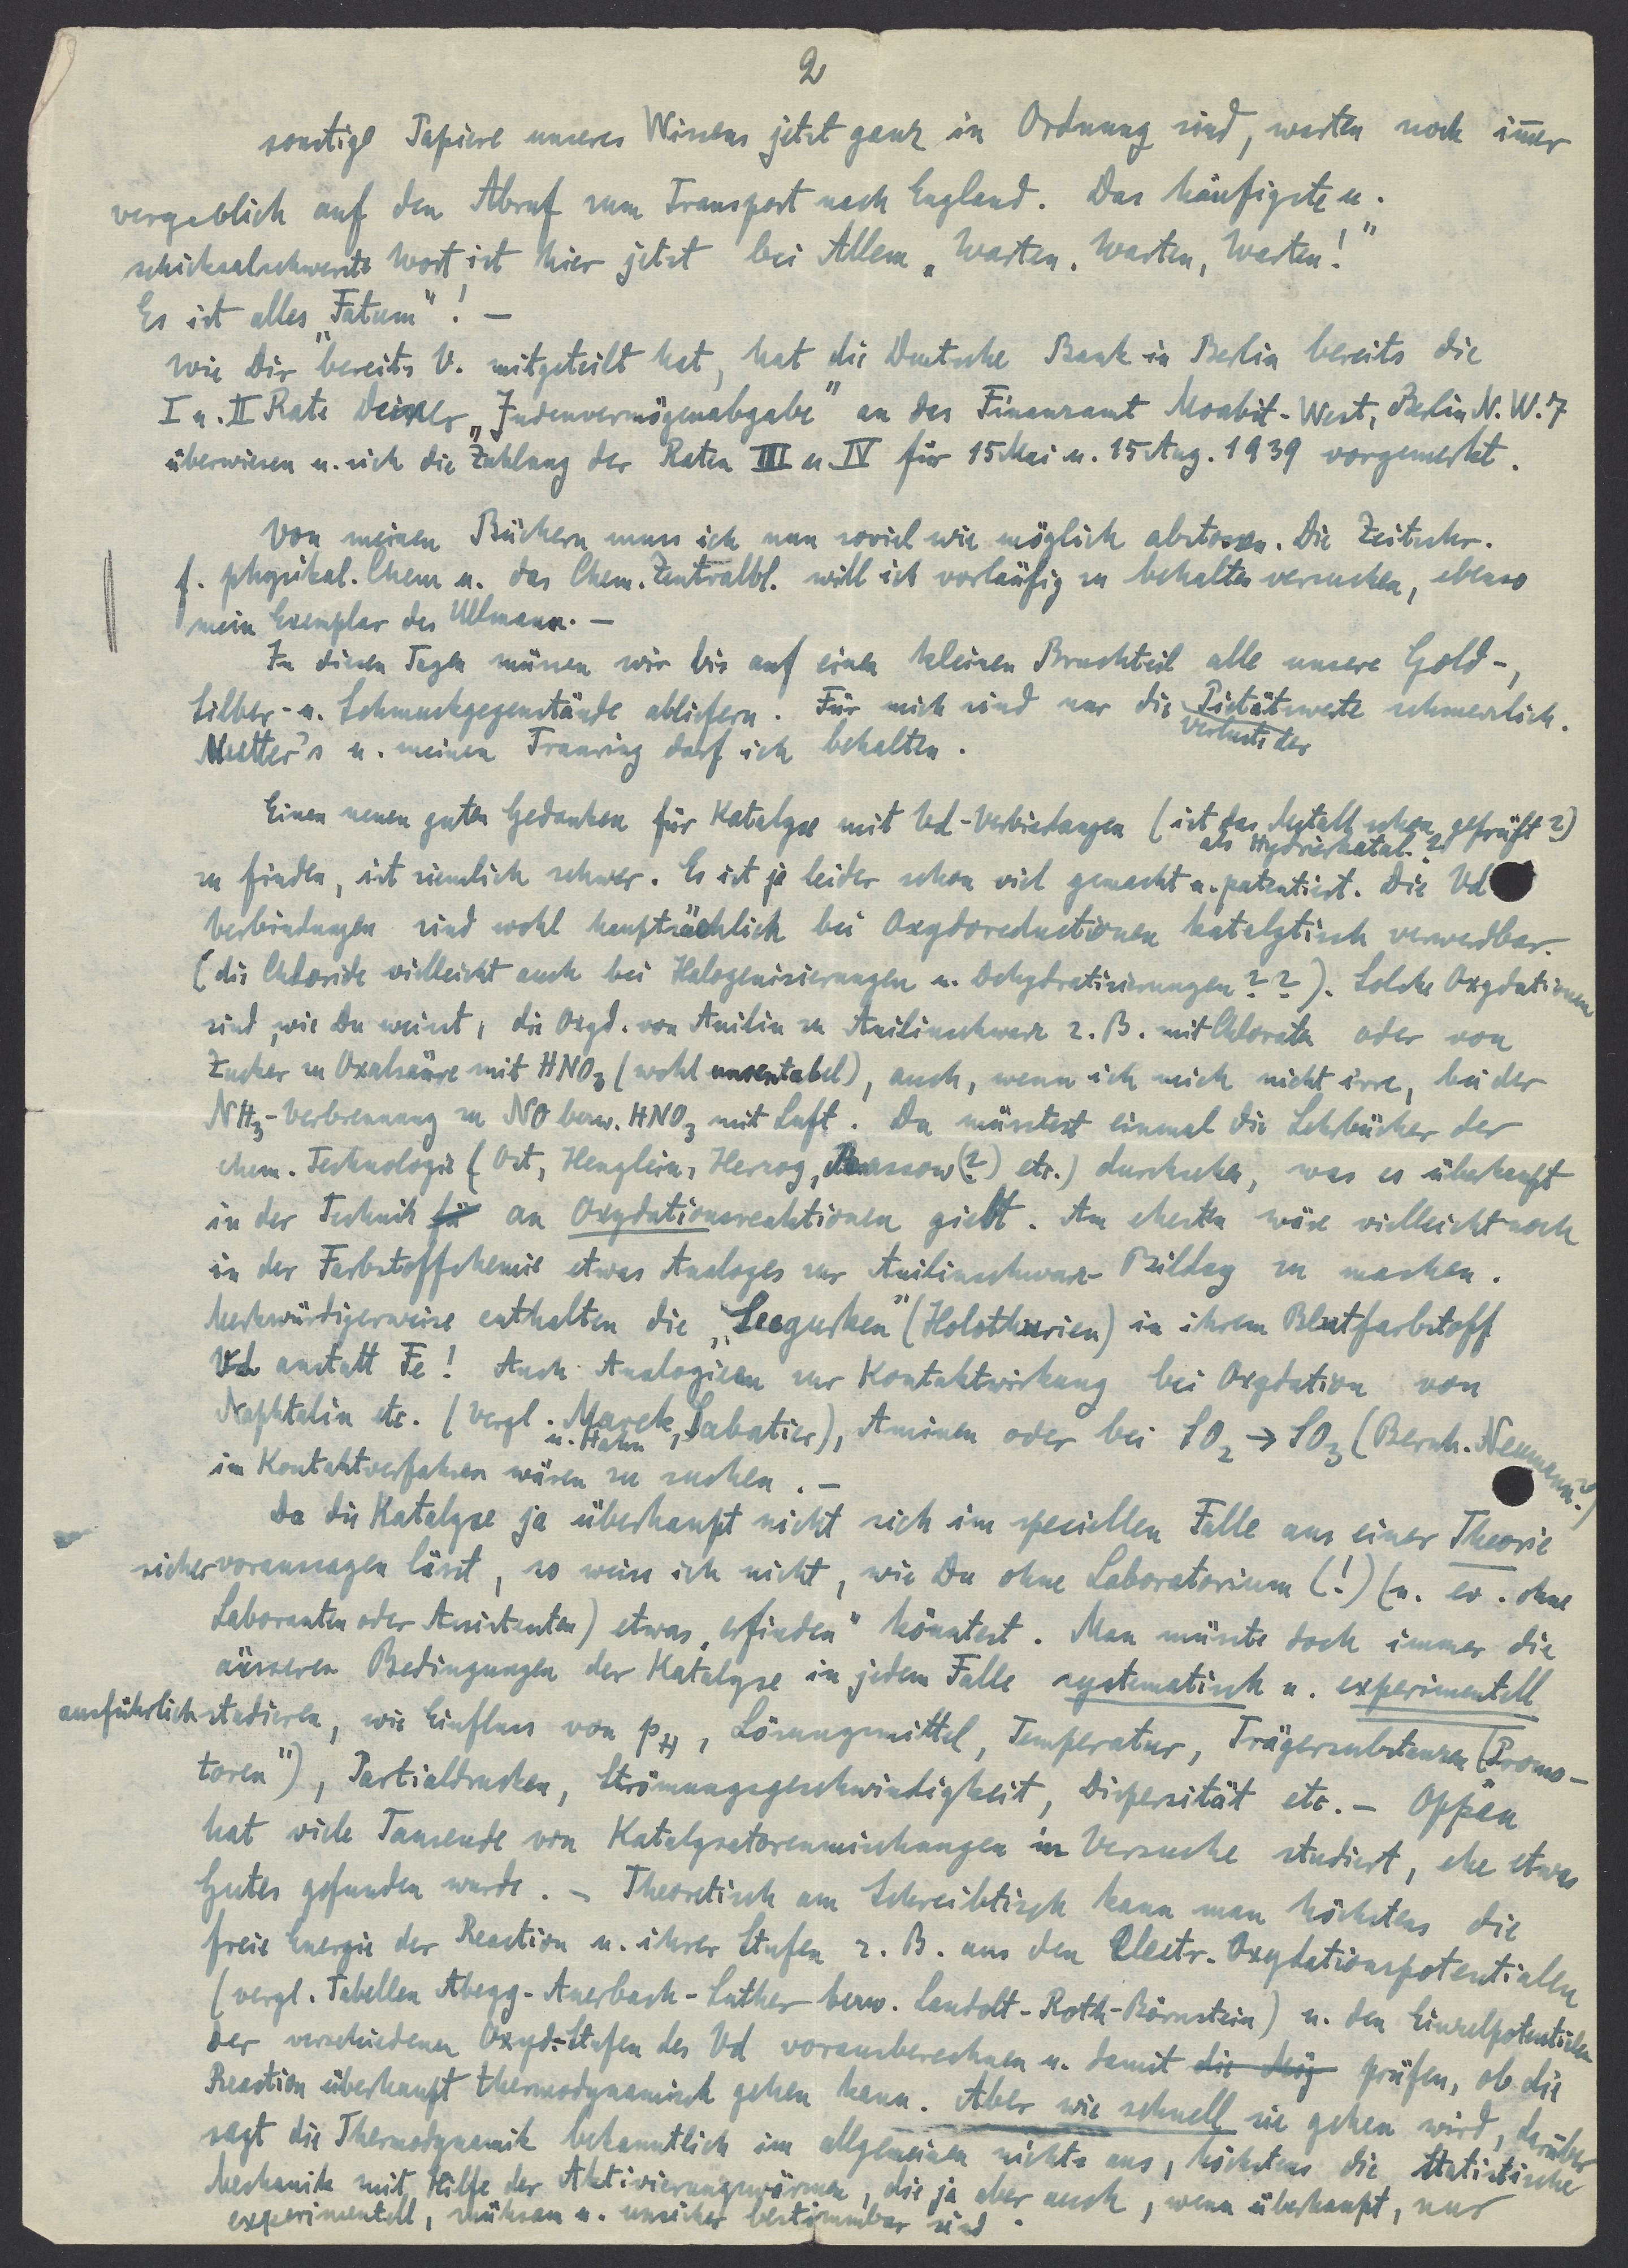 2
sonstige Papiere unseres Wissens jetzt ganz in Ordnung sind, warten noch im̅er
vergeblich auf den Abruf zum Transport nach England. Das häufigste u.
schicksalschwerste Wort ist hier jetzt bei Allem „Warten, Warten, Warten!"
Es ist alles „Fatum"! —
Wie Dir bereits V. mitgeteilt hat, hat die Deutsche Bank in Berlin bereits die
I u. II Rate Deiner „Judenvermögenabgabe" an das Finanzamt Moabit-West, Berlin N.W.7
überwiesen u. sich die Zahlung der Raten III u. IV für 15 Mai u. 15 Aug. 1939 vorgemerkt.
Von meinen Büchern muss ich nun soviel wie möglich abstossen. Die Zeitschr.
f. physikal. Chem u. das Chem. Zentralbl. will ich vorläufig zu behalten versuchen, ebenso
mein Exemplar des Ullmann. —
In diesen Tagen müssen wir bis auf einen kleinen Bruchteil alle unsere Gold-,
Silber- u. Schmuckgegenstände abliefern. Für mich sind nur die Pietätswerte schmerzlich.
Verluste der
Mutter's u. meinen Trauring darf ich behalten.
Einen neuen guten Gedanken für Katalyse mit Vd-Verbindungen (ist das Metall schon geprüft?)
als Hydrierkatal.?
zu finden, ist ziemlich schwer. Es ist ja leider schon viel gemacht u. patentiert. Die Vd
Verbindungen sind wohl hauptsächlich bei Oxydoreductionen katalytisch verwendbar.
(die Chloride vielleicht auch bei Halogenisierungen u. Dehydratisierungen??). Solche Oxydationen
sind, wie Du weisst, die Oxyd. von Anilin zu Anilinschwarz z. B. mit Chloraten oder von
Zucker zu Oxalsäure mit HNO₃ (wohl unrentabel), auch, wenn ich mich nicht irre, bei der
NH₃-Verbrennung zu NO bezw. HNO₃ mit Luft. Du müsstest einmal die Lehrbücher der
chem. Technologie (Ost, Henglein, Herzog, Rassow(?) etc.) durchsehen, was es überhaupt
in der Technik für an Oxydationsreaktionen giebt. Am ehesten wäre vielleicht noch
in der Farbstoffchemie etwas Analoges zur Anilinschwarz-Bildg zu machen.
Merkwürdigerweise enthalten die „Seegurken" (Holothurien) in ihrem Blutfarbstoff
Vd anstatt Fe! Auch Analogieen zur Kontaktwirkung bei Oxydation von
Naphtalin etc. (vergl. Marek, Sabatier), Aminen oder bei SO₂ → SO₃ (Bernh. Neumann?)
u. Hahn
im Kontaktverfahren wären zu suchen. —
Da die Katalyse ja überhaupt nicht sich im speciellen Falle aus einer Theorie
sicher voraussagen lässt, so weiss ich nicht, wie Du ohne Laboratorium (!) (u. ev. ohne
Laboranten oder Assistenten) etwas „erfinden" könntest. Man müsste doch immer die
äusseren Bedingungen der Katalyse in jedem Falle systematisch u. experimentell
ausführlich studieren, wie Einfluss von pH, Lösungsmittel, Temperatur, Trägersubstanzen („Promo-
toren"), Partialdrucken, Strömungsgeschwindigkeit, Dispersität etc. — Oppen
hat viele Tausende von Katalysatorenmischungen in Versuche studiert, ehe etwas
Gutes gefunden wurde. — Theoretisch am Schreibtisch kann man höchstens die
freie Energie der Reaction u. ihrer Stufen z. B. aus den Electr. Oxydationspotentialen
(vergl. Tabellen Abegg-Auerbach-Luther bezw. Landolt-Roth-Börnstein) u. den Einzelpotentialen
der verschiedenen Oxyd.-Stufen des Vd vorausberechnen u. damit die Mög prüfen, ob die
Reaction überhaupt thermodynamisch gehen kann. Aber wie schnell sie gehen wird, darüber
sagt die Thermodynamik bekanntlich im allgemeinen nichts aus, höchstens die statistische
Mechanik mit Hilfe der Aktivierungswärmen, die ja aber auch, wenn überhaupt, nur
experimentell, mühsam u. unsicher bestimmbar sind.